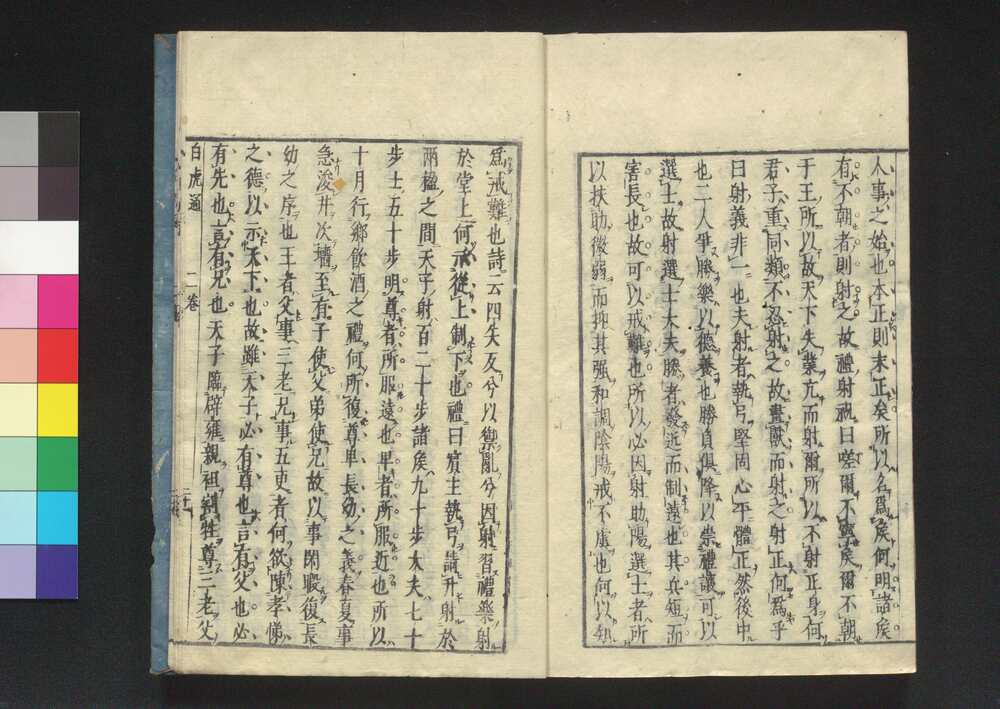 人事之始也本正則末正矣所以名爲矦何明諸矦
有不朝者則射之故禮射祝曰嗟爾不寧矦爾不朝
于王所以故天下失業亢而射爾所以不射正身何
君子重同類不忍射之故畫獸而射之射正何爲乎
曰射義非一也夫射者執弓堅固心平體正然後中
也二人爭勝樂以德養也勝負俱降以崇禮讓可以
選士故射選士大夫勝者發近而制遠也其兵短而
害長也故可以戒難也所以必因射助陽選士者所
以扶助微弱而抑其强和調陰陽戒不虞也何以知
爲戒難也詩云四矢反兮以禦亂兮因射習禮樂射
於堂上何示從上制下也禮曰賓主執弓請升射於
兩楹之間天子射百二十步諸矦九十步大夫七十
步士五十步明尊者所服遠也卑者所服近也所以
十月行鄉飮酒之禮何所復尊卑長幼之義春夏事
急浚井次墻至有子使父弟使兄故以事閑暇復長
幼之序也王者父事三老兄事五更者何欲陳孝悌
之德以示天下也故雖天子必有尊也言有父也必
有先也言有兄也天子臨辟雍親袒割牲尊三老父
白虎通 二卷